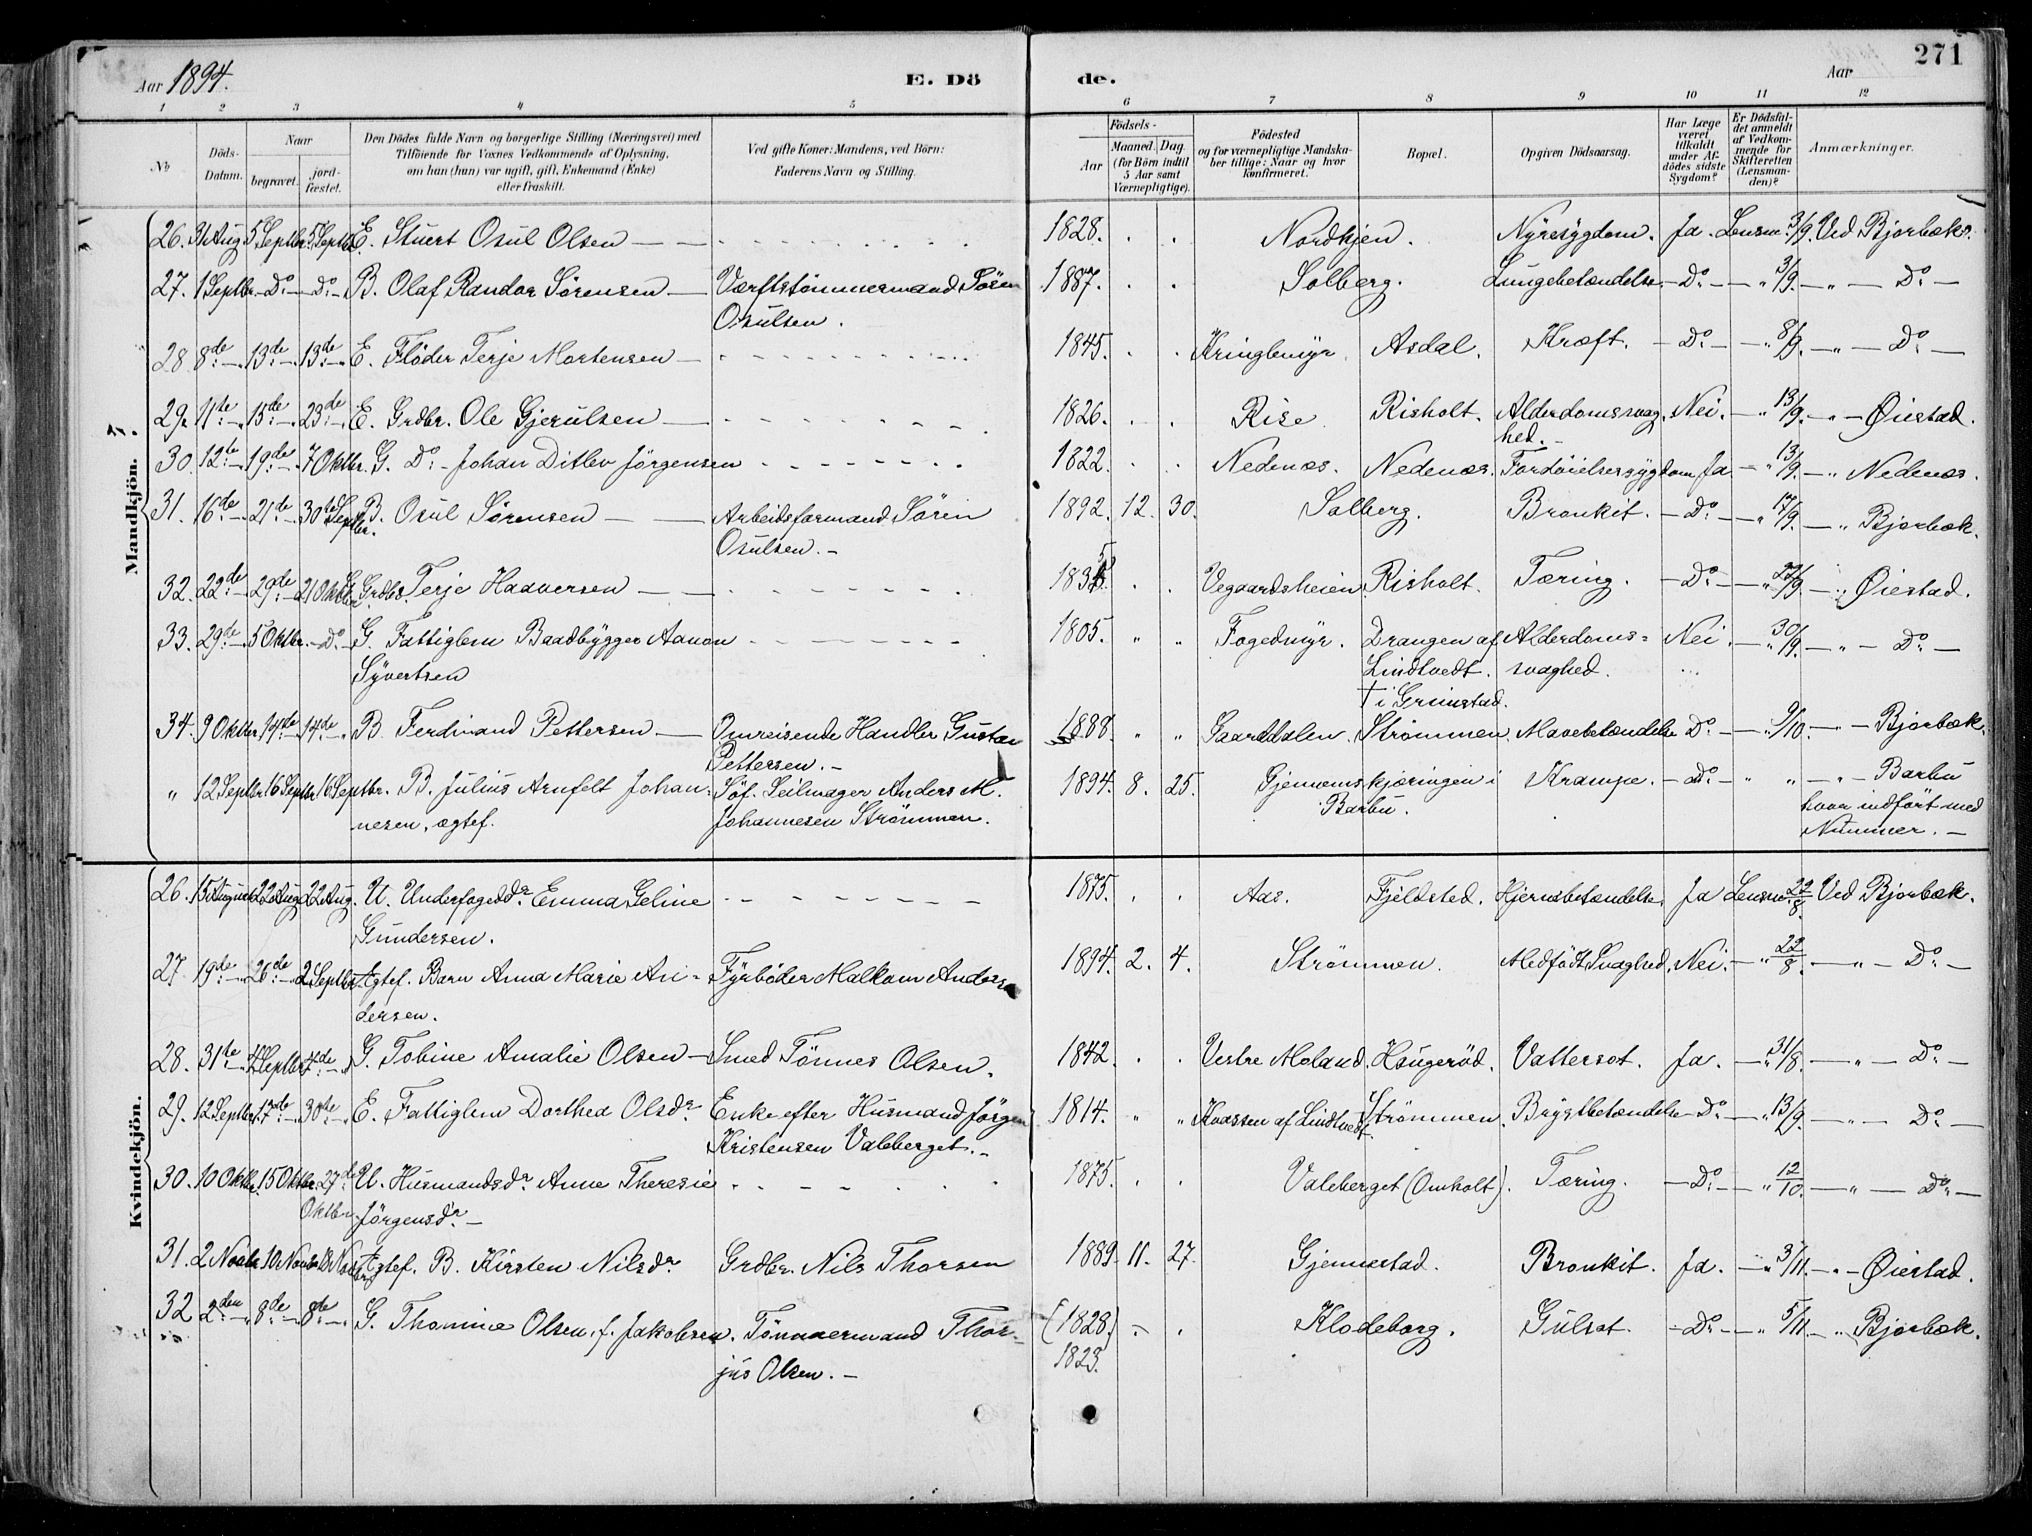 271
Aar 1894. E. Dö de. Aar
1 2 3 4 5 6 7 8 9 10 11 12
No
Döds-Datum.
Naar begravet. jord-fæstet.
Den Dödes fulde Navn og borgerlige Stilling (Næringsvei) med Tilföiende for Voxnes Vedkommende af Oplysning, om han (hun) var ugift, gift, Enkemand (Enke) eller fraskilt.
Ved gifte Koner: Mandens, ved Börn: Faderens Navn og Stilling.
Födsels-
Aar Maaned. Dag. (for Börn indtil 5 Aar samt Værnepligtige).
Födested og for værnepligtige Mandskaber tillige: Naar og hvor konfirmeret.
Bopæl.
Opgiven Dödsaarsag.
Har Læge været tilkaldt under Afdödes sidste Sygdom?
Er Dödsfaldet anmeldt af Vedkommende for Skifteretten (Lensmanden)?
Anmærkninger.
Mandkjön.
26. 31 Aug 5 Septbr. 5 Septbr E. Stuert Osul Olsen — 1828. Nordkjen. Nyresygdom. Ja. Lensm. 3/9. Ved Bjorbæk.
27. 1 Septbr. Do. Do. B. Olaf Randor Sørensen — Værftstömmermand Sören 1887. Solberg. Lungebetændelse. Do. " 3/9. " Do.
Osulsen.
28 8de 13de 13de E. Fløder Terje Mortensen — 1845. Kringlemyr. Asdal. Kræft. Do. " 8/9. " Do.
29. 11te 15de 23de E. Grdbr. Ole Gjerulsen — 1826. Rise Risholt. Alderdomssvag Nei. " 13/9. " Øiestad.
hed.
30. 12te 19de 7 Oktbr. G. Do. Johan Ditlev Jörgensen 1822. Nedenæs. Nedenæs. Fordöielsessygdom Ja " 13/9. " Nedenæs.
31. 16de 21de 30te Septbr. B. Osul Sørensen — Arbeidsformand Sören 1892. 12. 30. Solberg. Bronkit. Do. " 17/9. " Bjorbæk.
Osulsen.
32. 22de 29de 21 Oktbr G. Grdbr. Terje Haaversen — 1835. Vegaardsheien. Risholt. Tæring. Do. " 22/9. " Øiestad.
33. 29de 5 Oktbr. Do. G. Fattiglem Baadbygger Aanon 1805. " " Fogedmyr. Drangen af Alderdoms= Nei. " 30/9. " Do.
Syvertsen Lindtvedt. svaghed.
† i Grimstad.
34. 9 Oktbr. 14de 14de B. Ferdinand Pettersen — Omreisende Handler Gustav 1888. " " Saarddalen. Strømmen. Mavebetændelse Do. " 9/10. " Bjorbæk.
Pettersen.
" 12 Septbr 16 Septbr 16 Septbr. B. Julius Arnfelt Johan= Söf. Seilmager Anders M. 1894. 8. 25. Gjennemskjæringen i Krampe. Do. " " Barbu
nesen, ægtef. Johannesen Strømmen. Barbu. hvor indfört med
Nummer.
Kvindekjön.
26. 15 August 22 Aug 22 Aug. U. Underfogedd. Emma Geline 1875. Aas. Fjeldsted. Hjernebetændelse. Ja Lensm. 22/8. Ved Bjorbæk.
Gundersen.
27 19de 26de 2 Septbr Ægtef. Barn Anna Marie An= Fyrböder Malkom Anders 1894. 2. 4. Strömmen. Medfödt Svaghed. Nei. " 22/8. " Do.
dersen.
28. 31te 4 Septbr 4de G. Tobine Amalie Olsen — Smed Tönnes Olsen. 1842. Vestre Moland. Haugeröd. Vattersot. Ja. " 31/8. " Do.
29. 12 Septbr 17de 30te E. Fattiglem Dorthea Olsdr Enke efter Husmand Jörgen 1814. " " Kaassen af Lindtvedt. Strömmen. Brystbetændelse Do. " 13/9. " Do.
Kristensen Valeberget.
30. 10 Oktbr. 15 Oktbr. 27de U. Husmandsdr. Anne Theresie 1875. Valeberget (Omholt). Tæring. Do. " 12/10. " Do.
Oktbr. Jörgensdr.
31. 2 Novbr 10 Novbr 18 Novbr Ægtef. B. Kirsten Nilsdr Grdbr. Nils Thorsen 1889. 11. 27. Gjennestad. Bronkit. Ja. " 3/11. " Øiestad.
32 2den 8de 8de G. Thomine Olsen, f. Jakobsen. Tömmermand Thor- (1828.) Klodeborg. Gulsot. Do. " 5/11. " Bjorbæk.
jus Olsen. 1823.